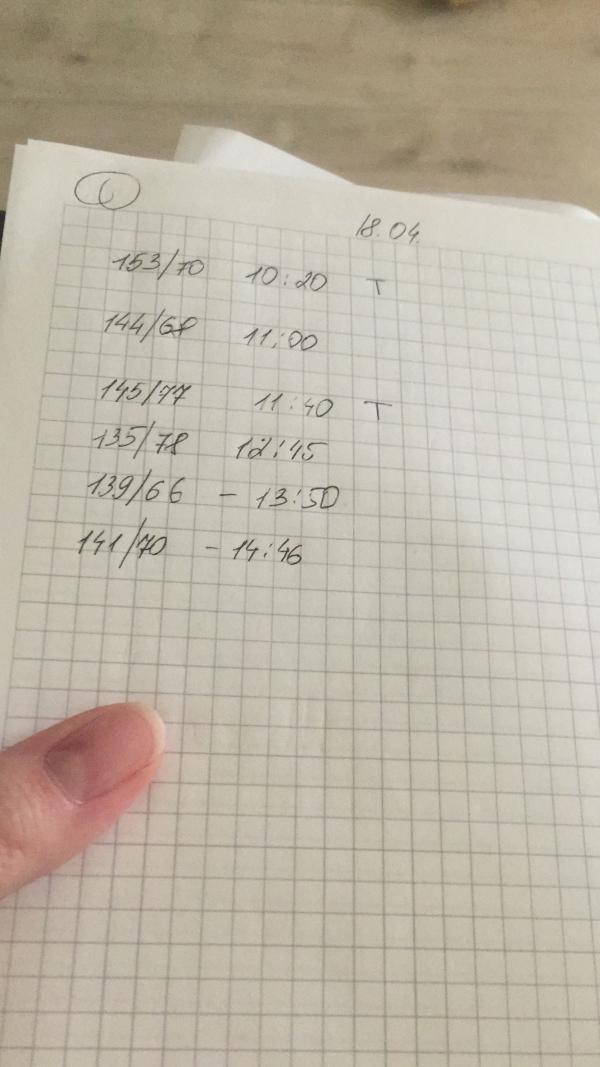 18.04.
153/70 10:20 T
144/68 11:00
145/77 11:40 T
135/78 12:45
139/66 - 13:50
141/70 - 14:46